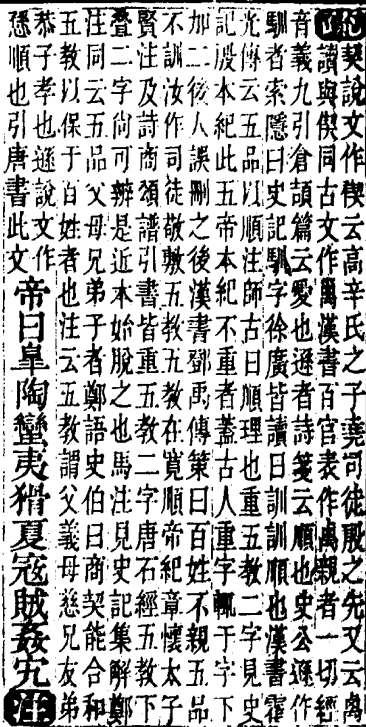 契說文作偰云高辛氏之子堯司徒殷之先又云禼
讀與偰同古文作漢書百官表作禼親者一切經
音義九引倉頡篇云愛也遜者詩箋云順也史公遜作
馴者索隱曰史記馴字徐廣皆讀曰訓訓順也漢書霍
光傳云五品以順注師古曰順理也重五教二字見史
記殷本紀此五帝本紀不重者蓋古人重字輒于字下
加二後人誤刪之後漢書鄧禹傳策曰百姓不親五品
不訓汝作司徒敬敷五教五教在寬順帝紀章懷太子
賢注及詩商頌譜引書皆重五教二字唐石經五教下
疊二字尚可辨是近本始脫之也馬注見史記集解鄭
注同云五品父母兄弟子者鄭語史伯曰商契能合和
五教以保于百姓者也注云五教謂父義母慈兄友弟
恭子孝也遜說文作
愻順也引唐書此文
帝曰皋陶蠻夷猾夏寇賊姦宄注